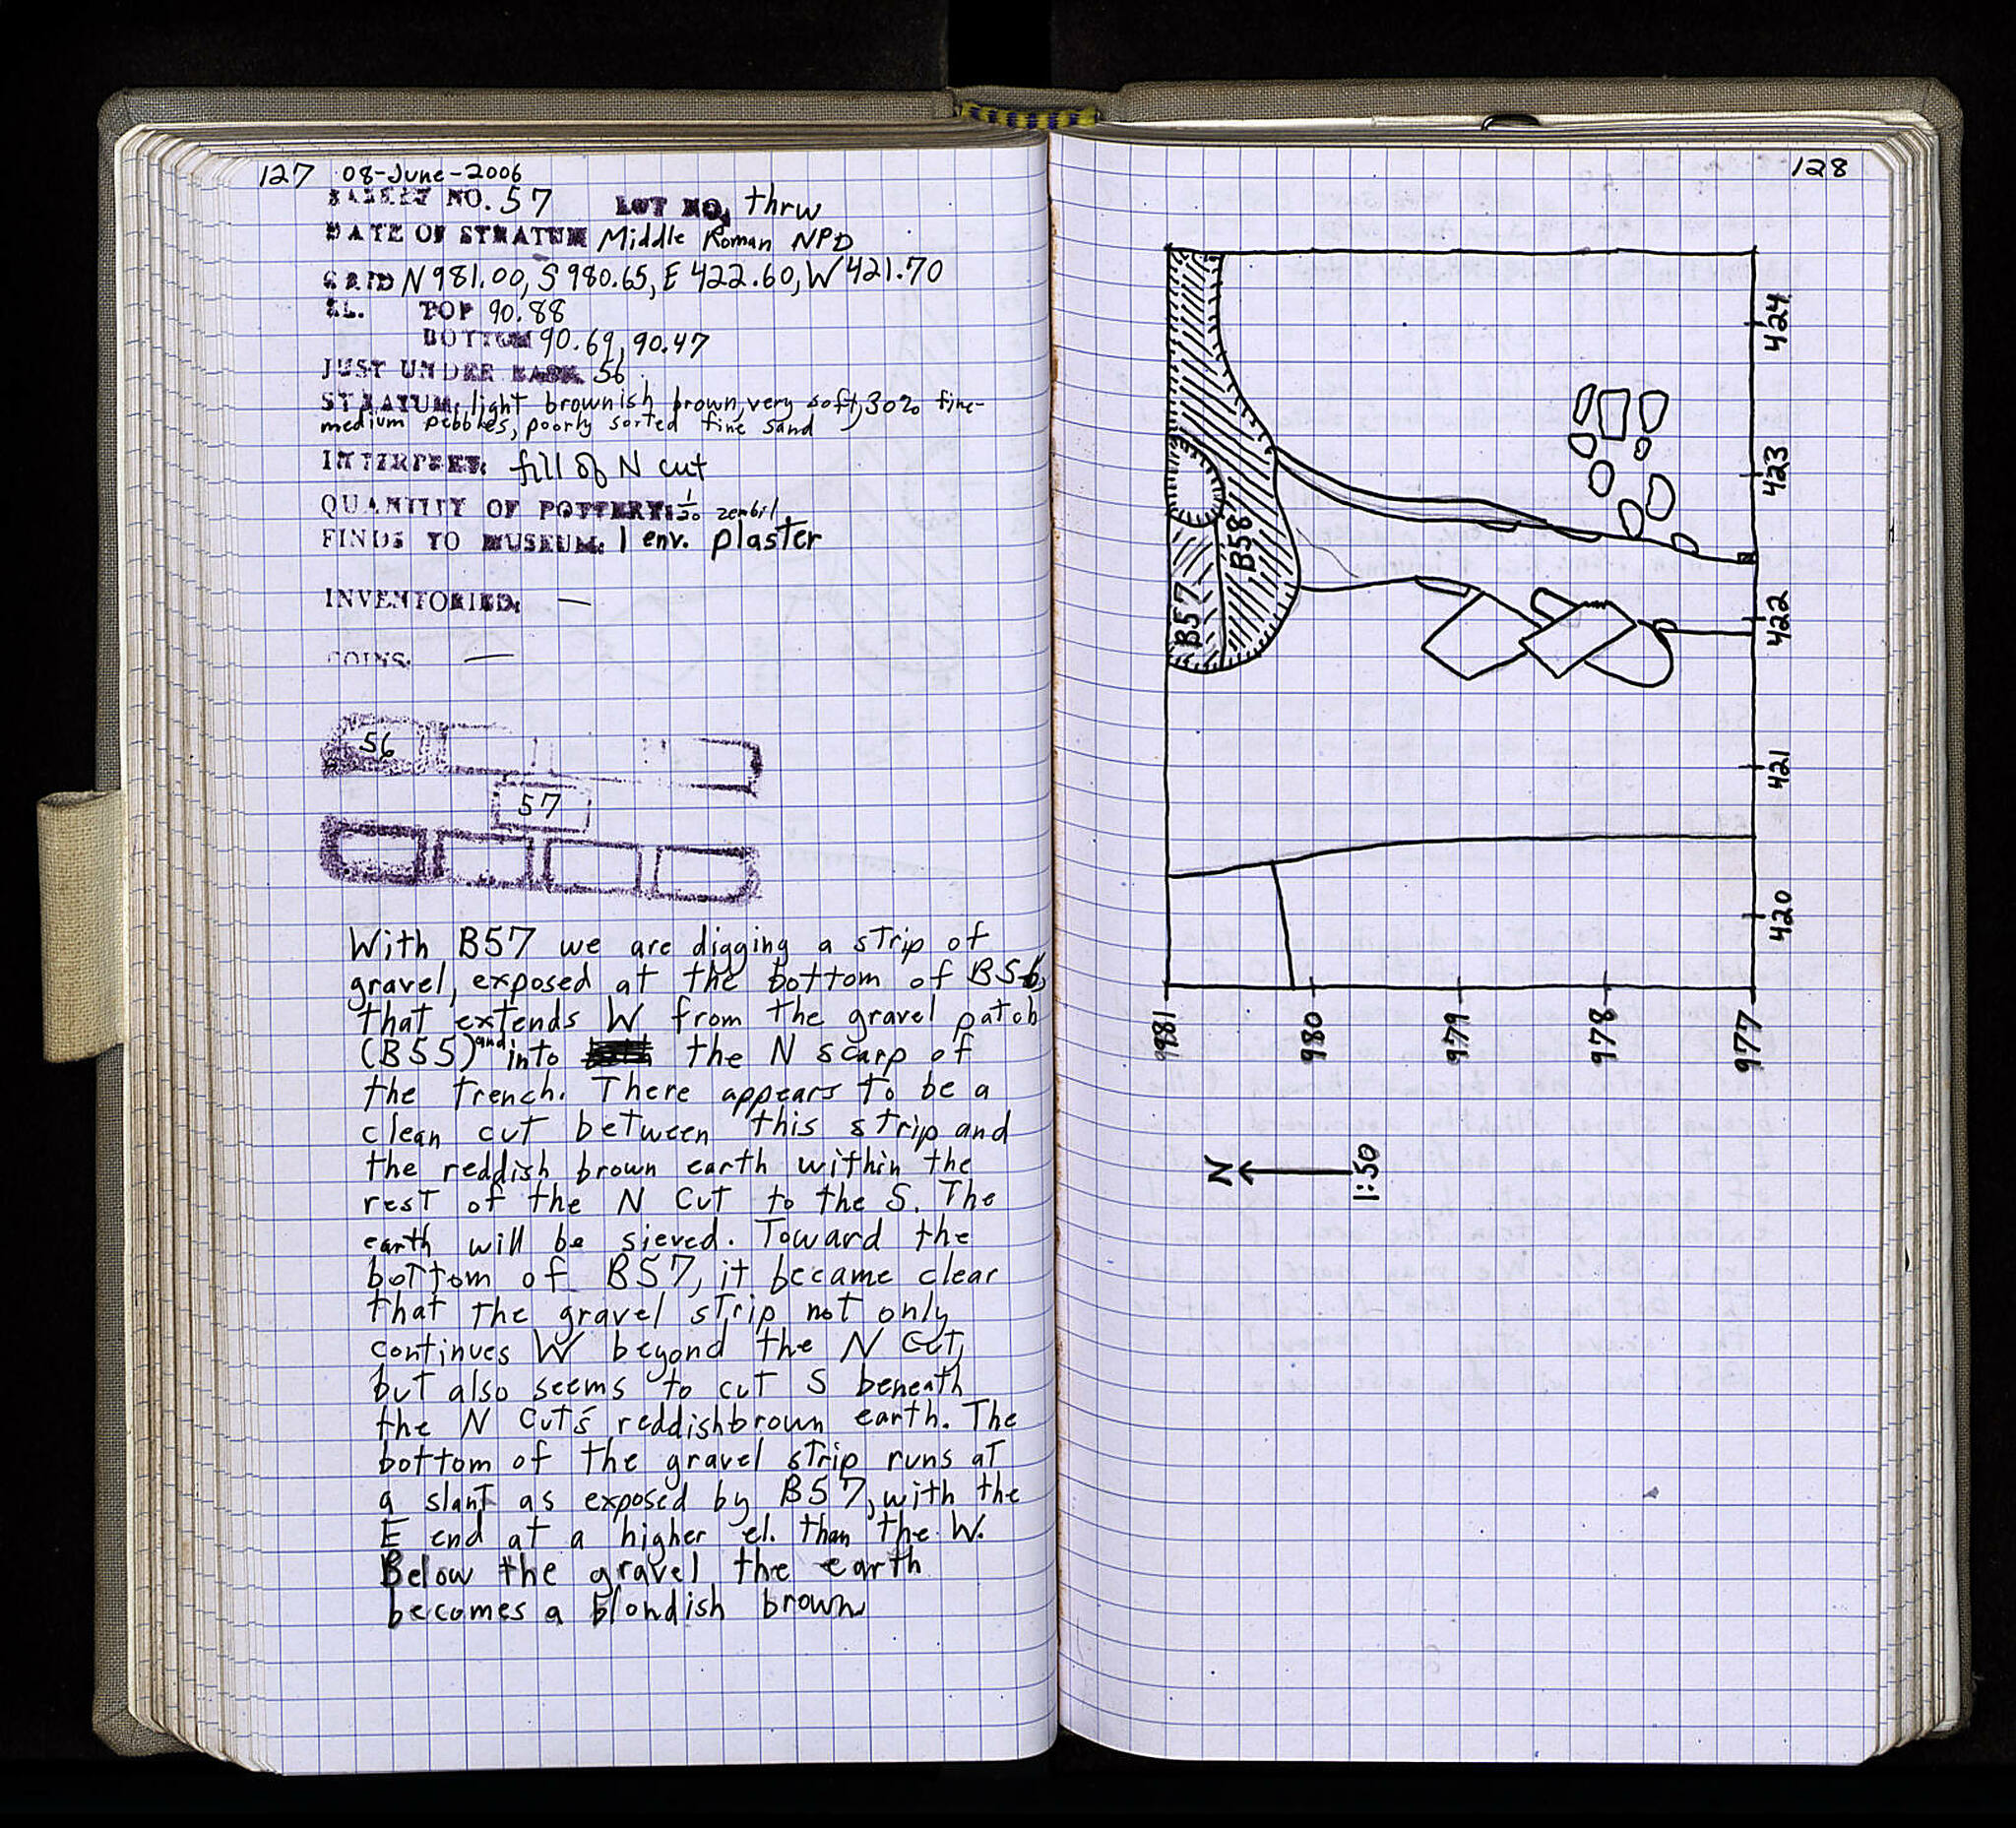 127 08-June-2006
BASKET NO. 57 LOT NO. thrw
DATE OF STRATUM Middle Roman NPD
GRID N 981.00, S 980.65, E 422.60, W 421.70
EL. TOP 90.88
BOTTOM 90.69, 90.47
JUST UNDER BASK. 56
STRATUM: light brownish brown, very soft, 30% fine-
medium pebbles, poorly sorted fine sand
INTERPRET: fill of N cut
QUANTITY OF POTTERY: 1/20 zembil
FINDS TO MUSEUM: 1 env. plaster
INVENTORIED: —
COINS. —
56
57
With B57 we are digging a strip of
gravel, exposed at the bottom of B56,
that extends W from the gravel patch
(B55) and into the N scarp of
the trench. There appears to be a
clean cut between this strip and
the reddish brown earth within the
rest of the N Cut to the S. The
earth will be sieved. Toward the
bottom of B57, it became clear
that the gravel strip not only
continues W beyond the N Cut,
but also seems to cut S beneath
the N Cut's reddishbrown earth. The
bottom of the gravel strip runs at
a slant as exposed by B57, with the
E end at a higher el. than the W.
Below the gravel the earth
becomes a blondish brown
128
424
423
422
421
420
B57
B58
981
980
979
978
977
N
1:50